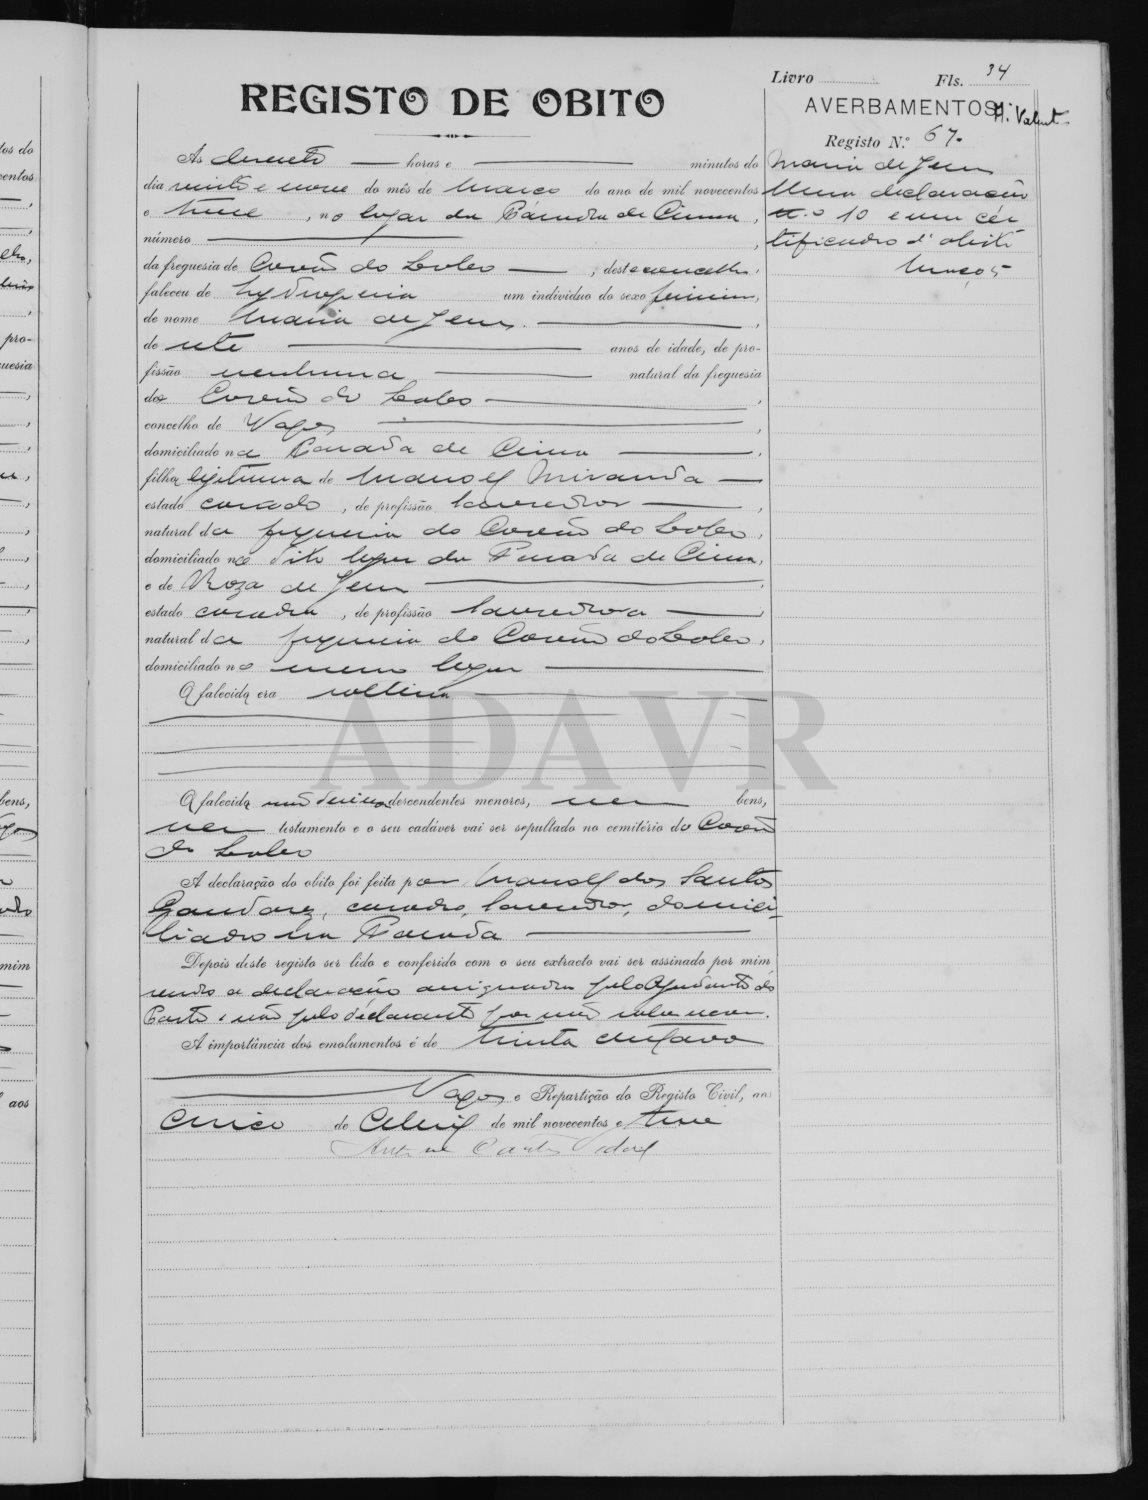 Livro Fls. 34
REGISTO DE OBITO
AVERBAMENTOS
Registo N.º 67.
Às horas e minutos do
dia vinte e nove do mês de Março do ano de mil novecentos
e treze, no lugar da Parada de Cima,
número
da freguesia de Covão do Lobo, deste concelho,
faleceu de um individuo do sexo feminino,
de nome Maria de Jesus,
de sete anos de idade, de pro-
fissão nenhuma natural da freguesia
do Covão do Lobo,
concelho de Vagos,
domiciliado na Parada de Cima,
filha legitima de Manoel Miranda
estado casado, de profissão lavrador,
natural da freguesia do Covão do Lobo,
domiciliado no dito lugar da Parada de Cima,
e de Roza de Jesus,
estado casada, de profissão lavradora,
natural da freguesia do Covão do Lobo,
domiciliado no mesmo lugar
A falecida era solteira
ADAVR
A falecida não deixa descendentes menores, nem bens,
nem testamento e o seu cadáver vai ser sepultado no cemitério do Covão
do Lobo
A declaração do obito foi feita por Manoel dos Santos
casado, lavrador, domici-
liado em Parada
Depois deste registo ser lido e conferido com o seu extracto vai ser assinado por mim
sendo a declaração assignada pelo Ajudante do
Posto e não pelo declarante por não saber escrever.
A importância dos emolumentos é de trinta centavos
Vagos e Repartição do Registo Civil, aos
cinco de Abril de mil novecentos e treze
Maria de Jesus
Uma declaração
n.º 10 e um cer
tificado d'obito
Março 5